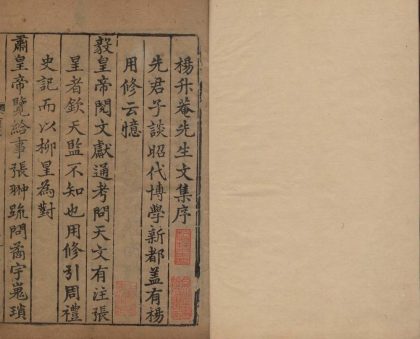 楊升菴先生文集序
先君子談昭代博學新都盖有楊
用修云憶
毅皇帝閱文獻通考問天文有注張
星者欽天監不知也用修引周禮
史記而以柳星為對
肅皇帝覽給事張翀疏問喬宇嵬瑣